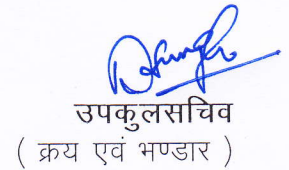 उपकुलसचिव
( क्रय एवं भण्डार )